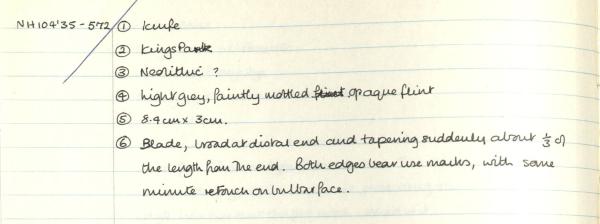 NH104'35-572 ① Knife
② Kings Park
③ Neolithic ?
④ Light grey, faintly mottled flint opaque flint
⑤ 8.4cm x 3cm.
⑥ Blade, broad at distal end and tapering suddenly about 1/3 of
the length from the end. Both edges bear use marks, with some
minute retouch on bulbar face.